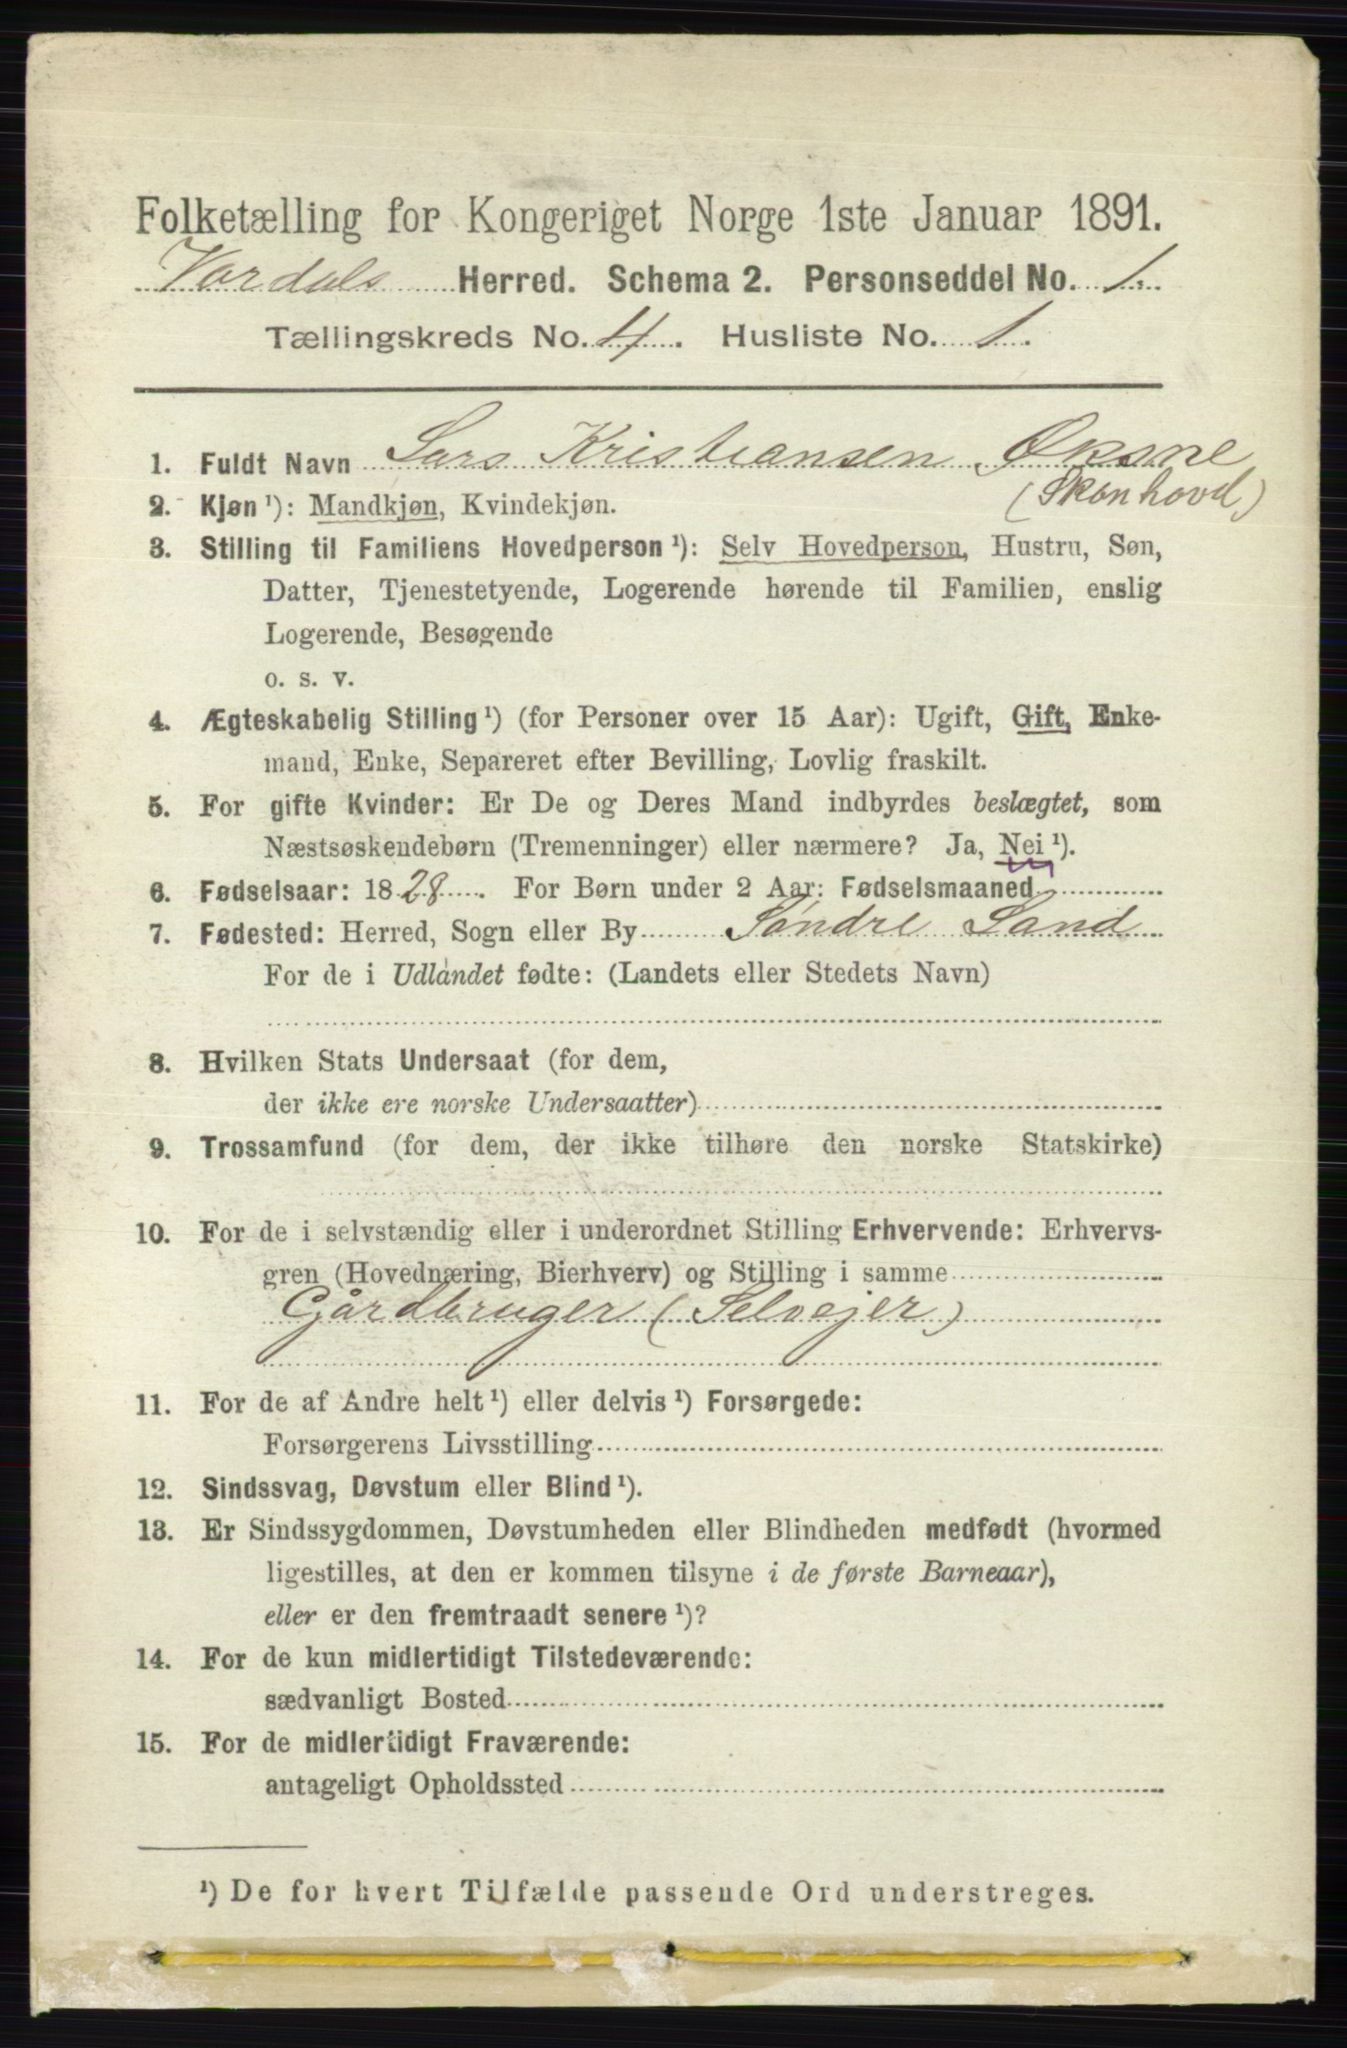 Folketælling for Kongeriget Norge 1ste Januar 1891.
Vardals Herred. Schema 2. Personseddel No. 1.
Tællingskreds No. 4. Husliste No. 1.
1. Fuldt Navn Lars Kristiansen Øksne
(Skonhovd)
2. Kjøn ¹): Mandkjøn, Kvindekjøn.
3. Stilling til Familiens Hovedperson ¹): Selv Hovedperson, Hustru, Søn,
Datter, Tjenestetyende, Logerende hørende til Familien, enslig
Logerende, Besøgende
o. s. v.
4. Ægteskabelig Stilling ¹) (for Personer over 15 Aar): Ugift, Gift, Enke-
mand, Enke, Separeret efter Bevilling, Lovlig fraskilt.
5. For gifte Kvinder: Er De og Deres Mand indbyrdes beslægtet, som
Næstsøskendebørn (Tremenninger) eller nærmere? Ja, Nei ¹).
6. Fødselsaar: 1828. For Børn under 2 Aar: Fødselsmaaned
7. Fødested: Herred, Sogn eller By Søndre Land
For de i Udlandet fødte: (Landets eller Stedets Navn)
8. Hvilken Stats Undersaat (for dem,
der ikke ere norske Undersaatter)
9. Trossamfund (for dem, der ikke tilhøre den norske Statskirke)
10. For de i selvstændig eller i underordnet Stilling Erhvervende: Erhvervs-
gren (Hovednæring, Bierhverv) og Stilling i samme
Gårdbruger (Selvejer)
11. For de af Andre helt ¹) eller delvis ¹) Forsørgede:
Forsørgerens Livsstilling
12. Sindssvag, Døvstum eller Blind ¹).
13. Er Sindssygdommen, Døvstumheden eller Blindheden medfødt (hvormed
ligestilles, at den er kommen tilsyne i de første Barneaar),
eller er den fremtraadt senere ¹)?
14. For de kun midlertidigt Tilstedeværende:
sædvanligt Bosted
15. For de midlertidigt Fraværende:
antageligt Opholdssted
¹) De for hvert Tilfælde passende Ord understreges.